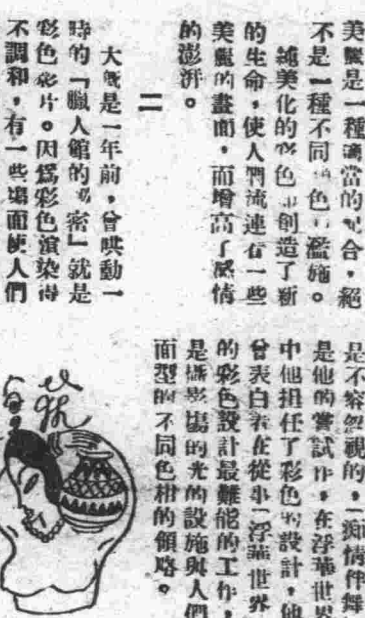 美麗是一種適當的配合，絕
不是一種不同的色的濫施。
純美化的彩色，創造了新
的生命，使人們流連在一些
美麗的畫面，而增高了感情
的澎湃。
二
大概是一年前，曾哄動一
時的「臘人館的秘密」就是
彩色影片。因爲彩色渲染得
不調和，有一些場面使人們
是不容忽視的，「痴情伴舞
是他的嘗試作，在浮華世界
中他担任了彩色的設計，他
曾表白着在從事「浮華世界
的彩色設計最難能的工作，
是攝影場的光的設施與人們
面型的不同色相的領略。